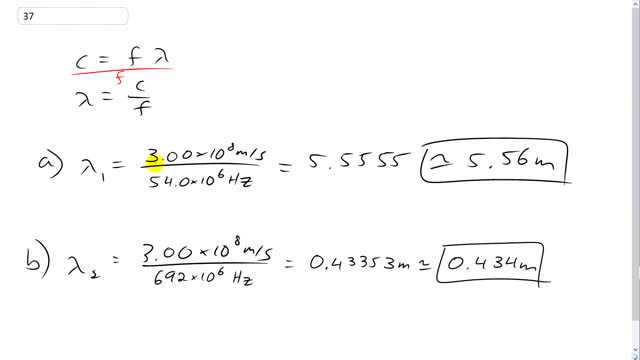 37
c = f λ
f
λ = c/f
a) λ₁ = 3.00×10⁸ m/s / 54.0×10⁶ Hz = 5.5555 ≃ 5.56 m
b) λ₂ = 3.00×10⁸ m/s / 692×10⁶ Hz = 0.43353 m ≃ 0.434 m